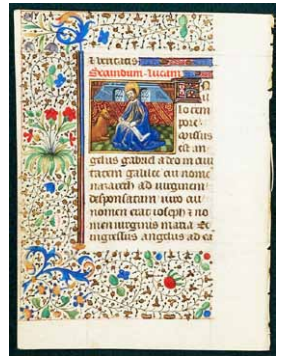 & veritas
Secundum lucam
In
lo tem
pore
missus
est an
gelus gabriel a deo in ciui
tatem galilee cui nomen
nazareth ad uirginem
desponsatam uiro cui
nomen erat ioseph & no
men uirginis maria Et
ingressus angelus ad ea